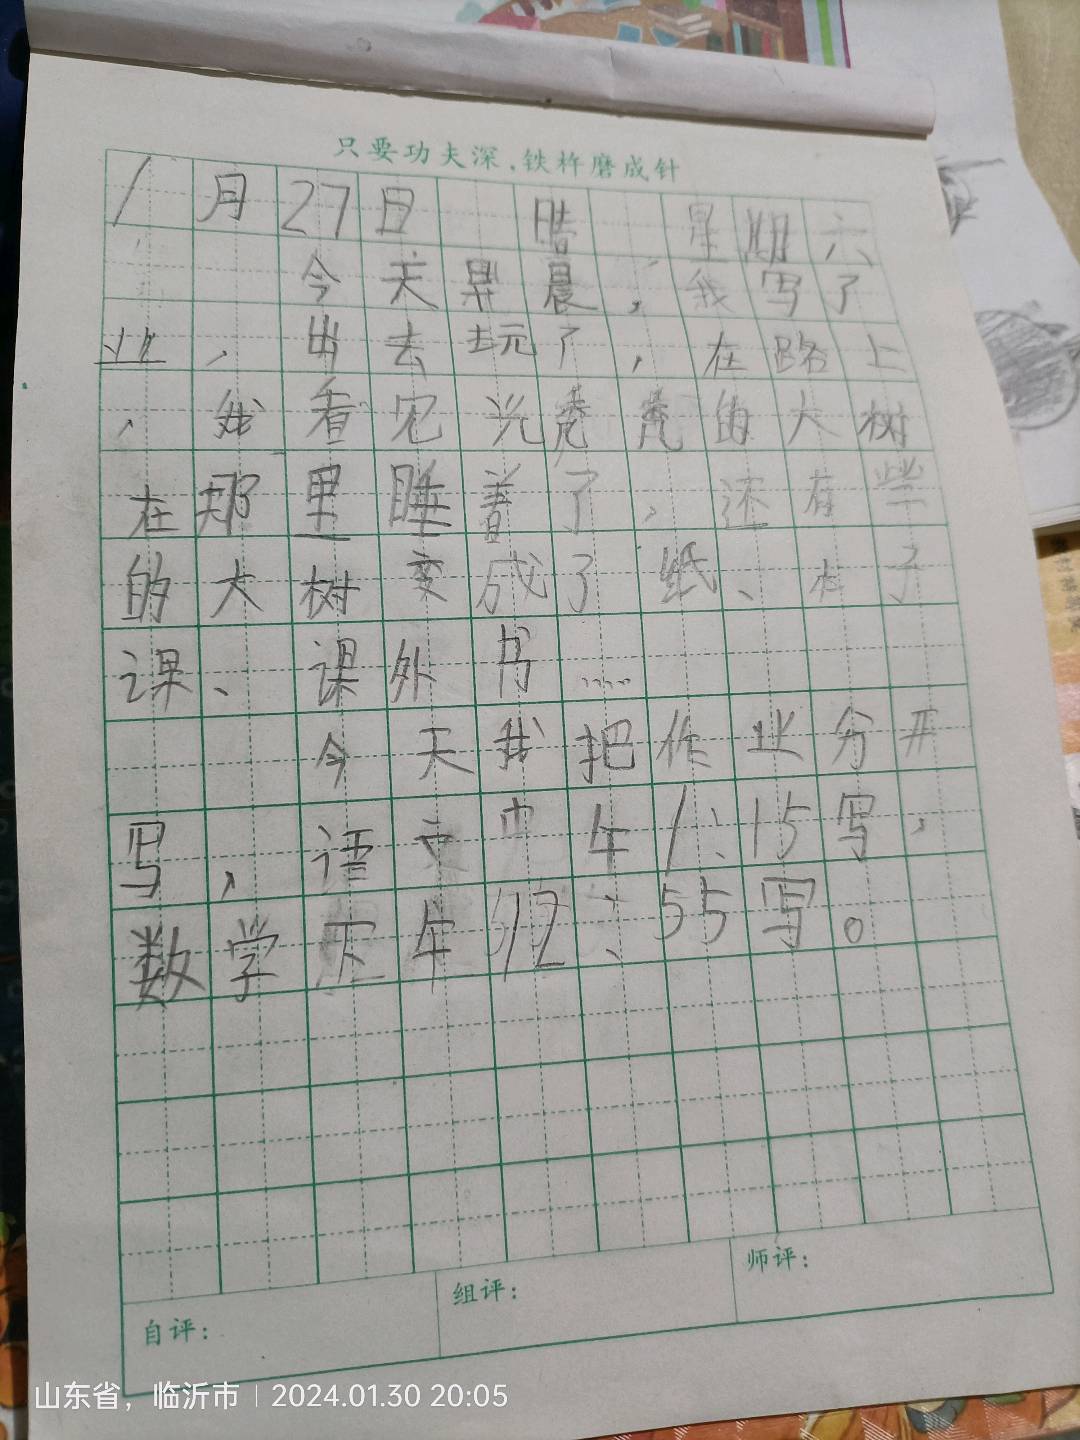 只要功夫深，铁杵磨成针
1月27日 晴 星期六
今天早晨，我写了
业，出去玩了，在路上
，我看见光秃秃的大树
在那里睡着了，还有些
的大树变成了纸、本子
课、课外书……
今天我把作业分开
写，语文中午1:15写，
数学下午12:55写。
自评： 组评： 师评：
山东省，临沂市 | 2024.01.30 20:05